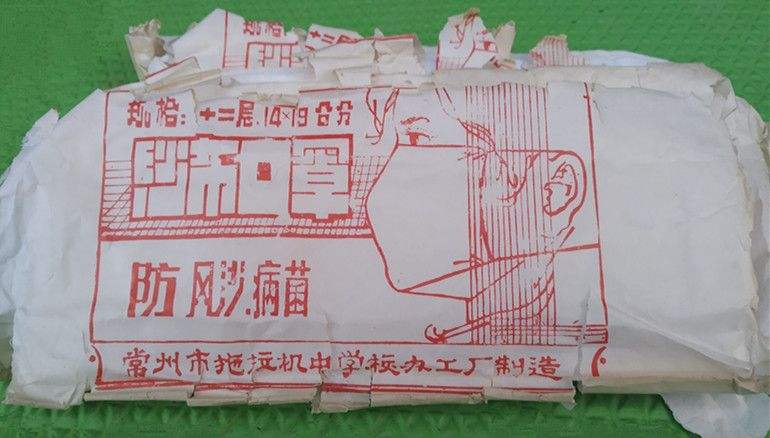 规格：十二层.14×19公分
纱布口罩
防风沙.病菌
常州市拖拉机中学校办工厂制造